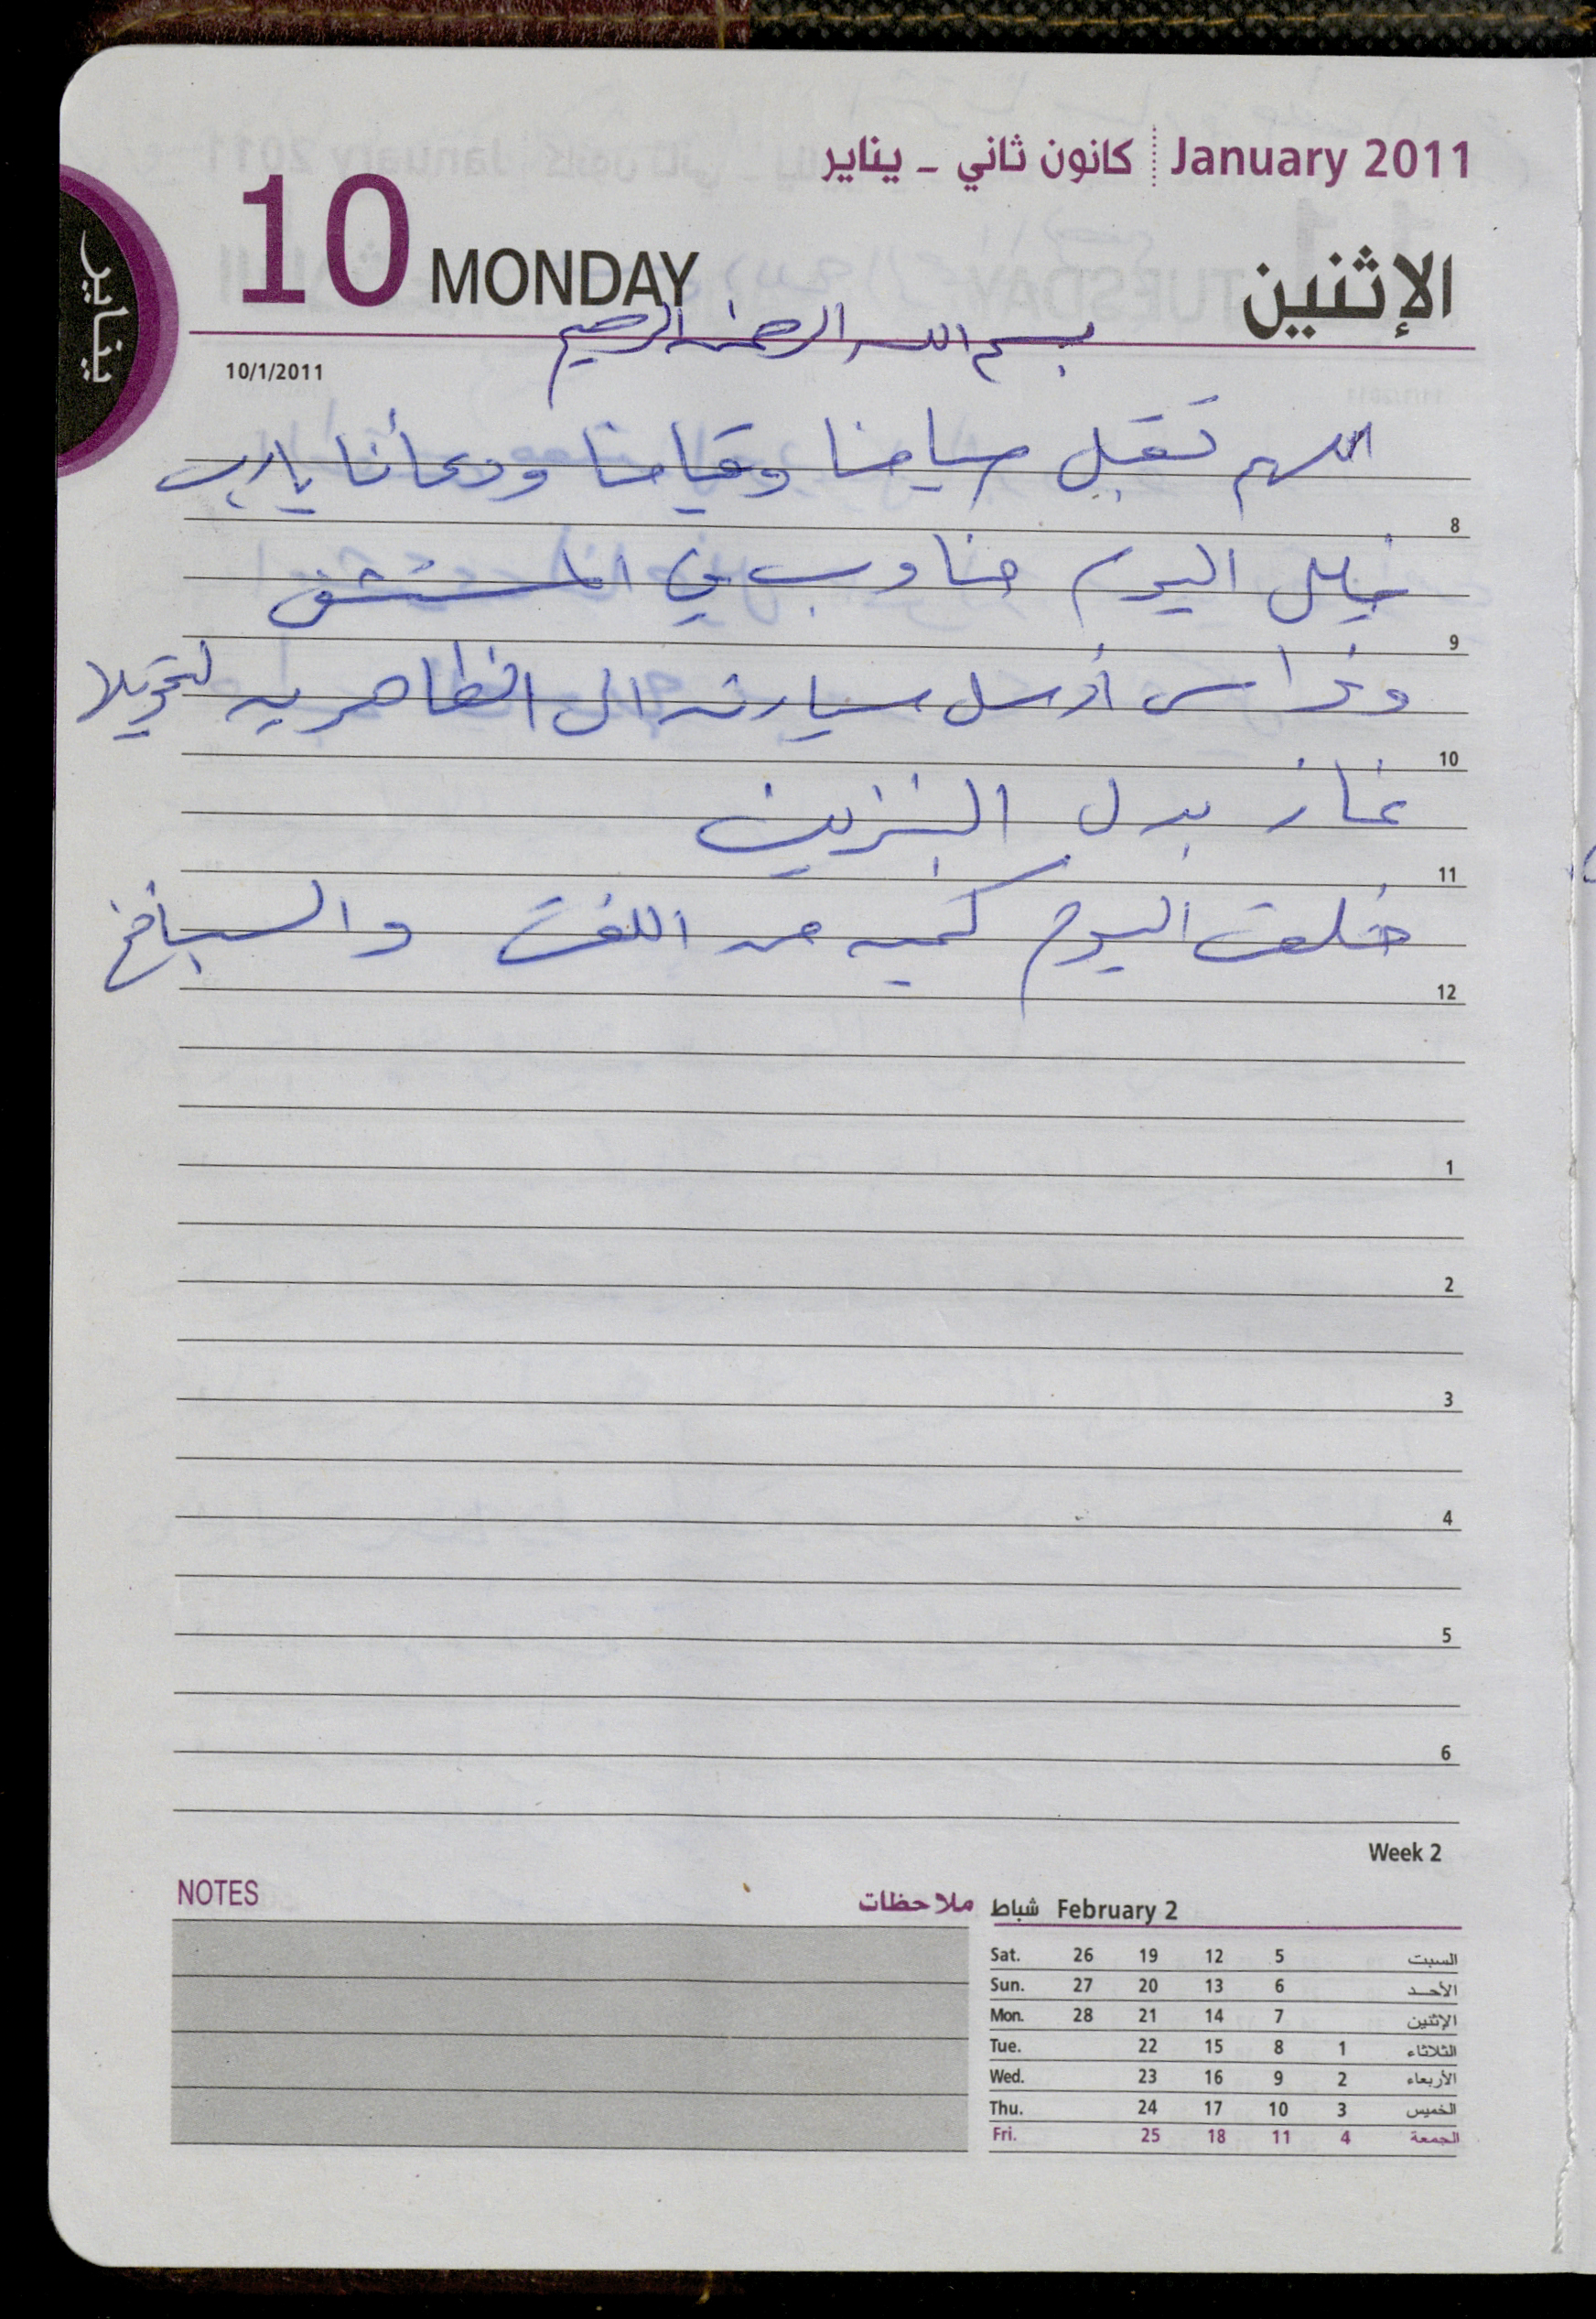 January 2011 كانون ثاني - يناير
10 MONDAY الإثنين
يناير
بسم الله الرحمن الرحيم
10/1/2011
اللهم تقبل صيامنا وقيامنا ودعأنا يا رب
8
اليوم مناوب في المستشفى
9
وفراس أرسل سيارته الى الظاهريه لتحويلا
10
غاز بدل البنزين
11
خلعت اليوم كميه من اللفت والسبانخ
12
1
2
3
4
5
6
Week 2
NOTES ملاحظات
شباط February 2
Sat. 26 19 12 5 السبت
Sun. 27 20 13 6 الأحد
Mon. 28 21 14 7 الإثنين
Tue. 22 15 8 1 الثلاثاء
Wed. 23 16 9 2 الأربعاء
Thu. 24 17 10 3 الخميس
Fri. 25 18 11 4 الجمعة